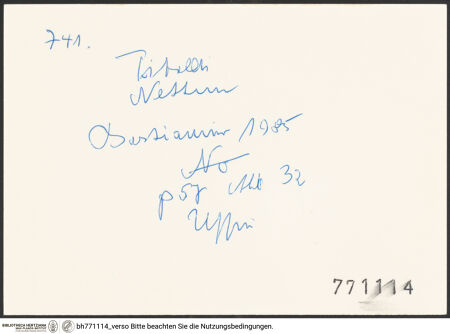 741.
Tibaldi
Nettun
Bastianino 1985
No
p 57 Abb 32
Uffizi
771114
BIBLIOTHECA HERTZIANA
bh771114_verso Bitte beachten Sie die Nutzungsbedingungen.